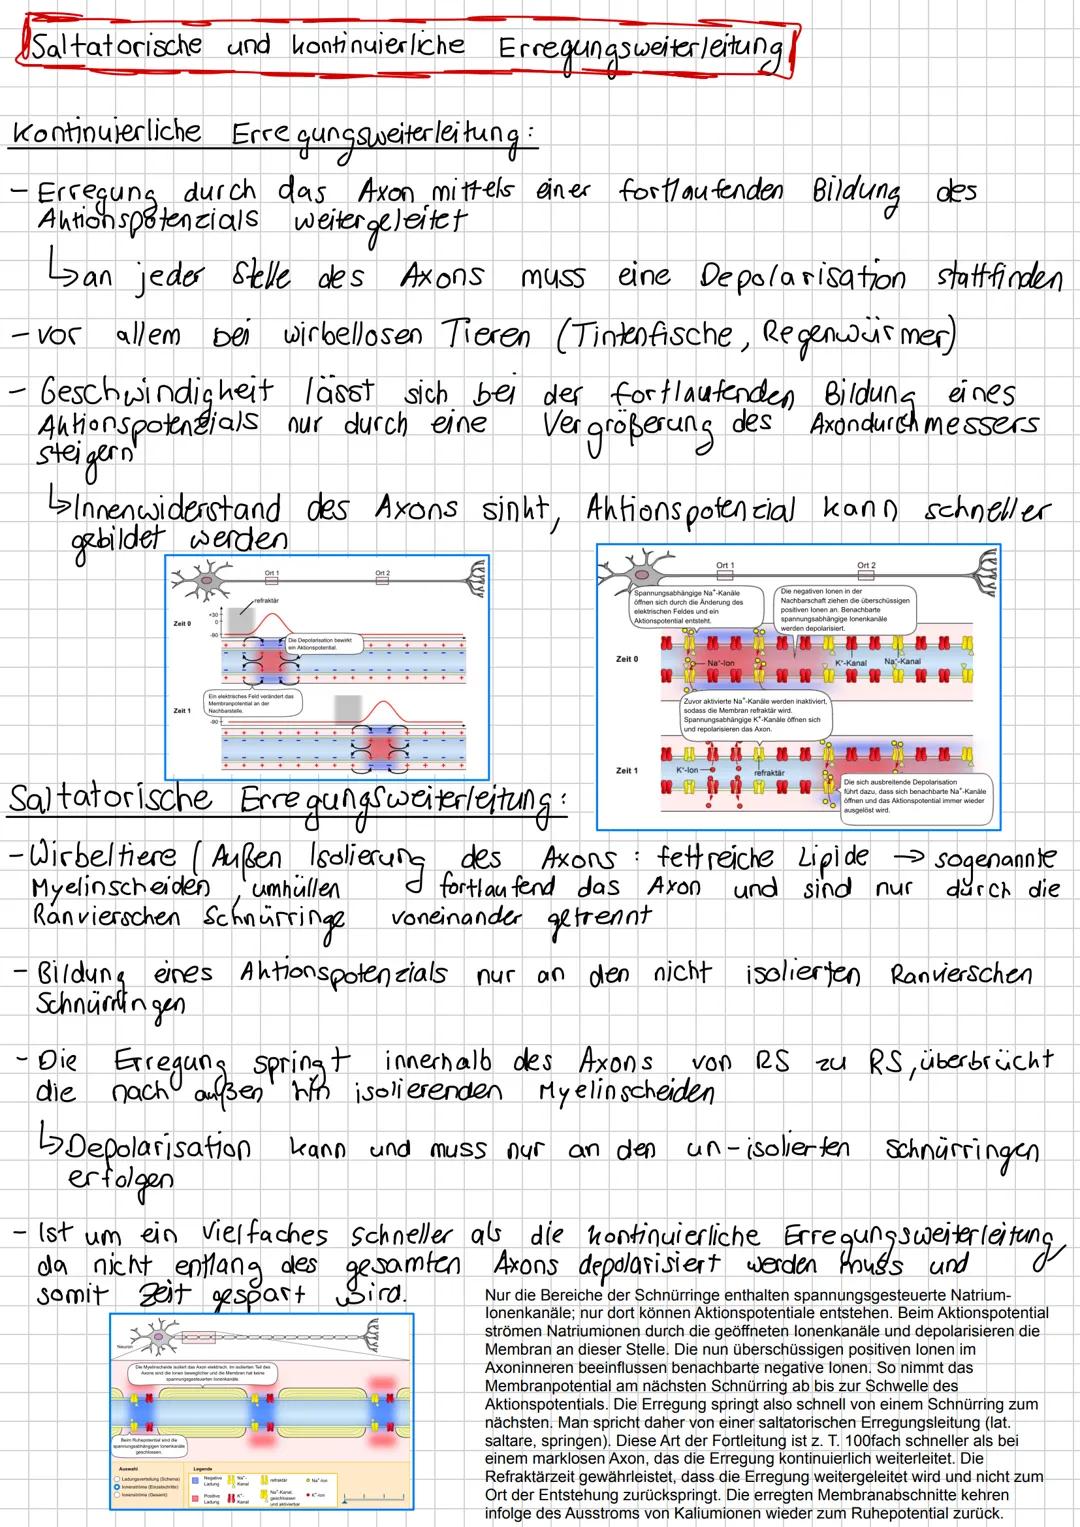 Saltatorische und kontinuierliche Erregungsweiterleitung
Kontinuierliche Erregungsweiterleitung:
- Erregung durch das Axon mittels einer fortlaufenden Bildung des
Aktionspotenzials weitergeleitet
↳ an jeder Stelle des Axons muss eine Depolarisation stattfinden
- vor allem bei wirbellosen Tieren (Tintenfische, Regenwürmer)
- Geschwindigkeit lässt sich bei der fortlaufenden Bildung eines
Aktionspotenzials nur durch eine Vergrößerung des Axondurchmessers
steigern
↳ Innenwiderstand des Axons sinkt, Aktionspotenzial kann schneller
gebildet werden
Ort 1 Ort 2
refraktär
+30
0
-90
Zeit 0
Die Depolarisation bewirkt
ein Aktionspotential.
Ein elektrisches Feld verändert das
Membranpotential an der
Nachbarstelle.
Zeit 1
-90
Ort 1 Ort 2
Spannungsabhängige Na⁺-Kanäle
öffnen sich durch die Änderung des
elektrischen Feldes und ein
Aktionspotential entsteht.
Die negativen Ionen in der
Nachbarschaft ziehen die überschüssigen
positiven Ionen an. Benachbarte
spannungsabhängige Ionenkanäle
werden depolarisiert.
Zeit 0
Na⁺-Ion
K⁺-Kanal
Na⁺-Kanal
Zuvor aktivierte Na⁺-Kanäle werden inaktiviert,
sodass die Membran refraktär wird.
Spannungsabhängige K⁺-Kanäle öffnen sich
und repolarisieren das Axon.
Zeit 1
K⁺-Ion
refraktär
Die sich ausbreitende Depolarisation
führt dazu, dass sich benachbarte Na⁺-Kanäle
öffnen und das Aktionspotential immer wieder
ausgelöst wird.
Saltatorische Erregungsweiterleitung:
- Wirbeltiere (Außen Isolierung des Axons: fettreiche Lipide → sogenannte
Myelinscheiden, umhüllen fortlaufend das Axon und sind nur durch die
Ranvierschen Schnürringe voneinander getrennt
- Bildung eines Aktionspotenzials nur an den nicht isolierten Ranvierschen
Schnürringen
- Die Erregung springt innerhalb des Axons von RS zu RS, überbrückt
die nach außen hin isolierenden Myelinscheiden
↳ Depolarisation kann und muss nur an den un-isolierten Schnürringen
erfolgen
- Ist um ein vielfaches schneller als die kontinuierliche Erregungsweiterleitung,
da nicht entlang des gesamten Axons depolarisiert werden muss und
somit Zeit gespart wird.
Neuron
Die Myelinscheide isoliert das Axon elektrisch. Im isolierten Teil des
Axons sind die Ionen beweglicher und die Membran hat keine
spannungsgesteuerten Ionenkanäle.
Beim Ruhepotential sind die
spannungsabhängigen Ionenkanäle
geschlossen.
Auswahl
Ladungsverteilung (Schema)
Ionenströme (Einzelschritte)
Ionenströme (Gesamt)
Legende
Negative Ladung
Na⁺-Kanal
refraktär
Na⁺-Ion
Positive Ladung
K⁺-Kanal
Na⁺-Kanal, geschlossen und aktivierbar
K⁺-Ion
Nur die Bereiche der Schnürringe enthalten spannungsgesteuerte Natrium-
Ionenkanäle; nur dort können Aktionspotentiale entstehen. Beim Aktionspotential
strömen Natriumionen durch die geöffneten Ionenkanäle und depolarisieren die
Membran an dieser Stelle. Die nun überschüssigen positiven Ionen im
Axoninneren beeinflussen benachbarte negative Ionen. So nimmt das
Membranpotential am nächsten Schnürring ab bis zur Schwelle des
Aktionspotentials. Die Erregung springt also schnell von einem Schnürring zum
nächsten. Man spricht daher von einer saltatorischen Erregungsleitung (lat.
saltare, springen). Diese Art der Fortleitung ist z. T. 100fach schneller als bei
einem marklosen Axon, das die Erregung kontinuierlich weiterleitet. Die
Refraktärzeit gewährleistet, dass die Erregung weitergeleitet wird und nicht zum
Ort der Entstehung zurückspringt. Die erregten Membranabschnitte kehren
infolge des Ausstroms von Kaliumionen wieder zum Ruhepotential zurück.